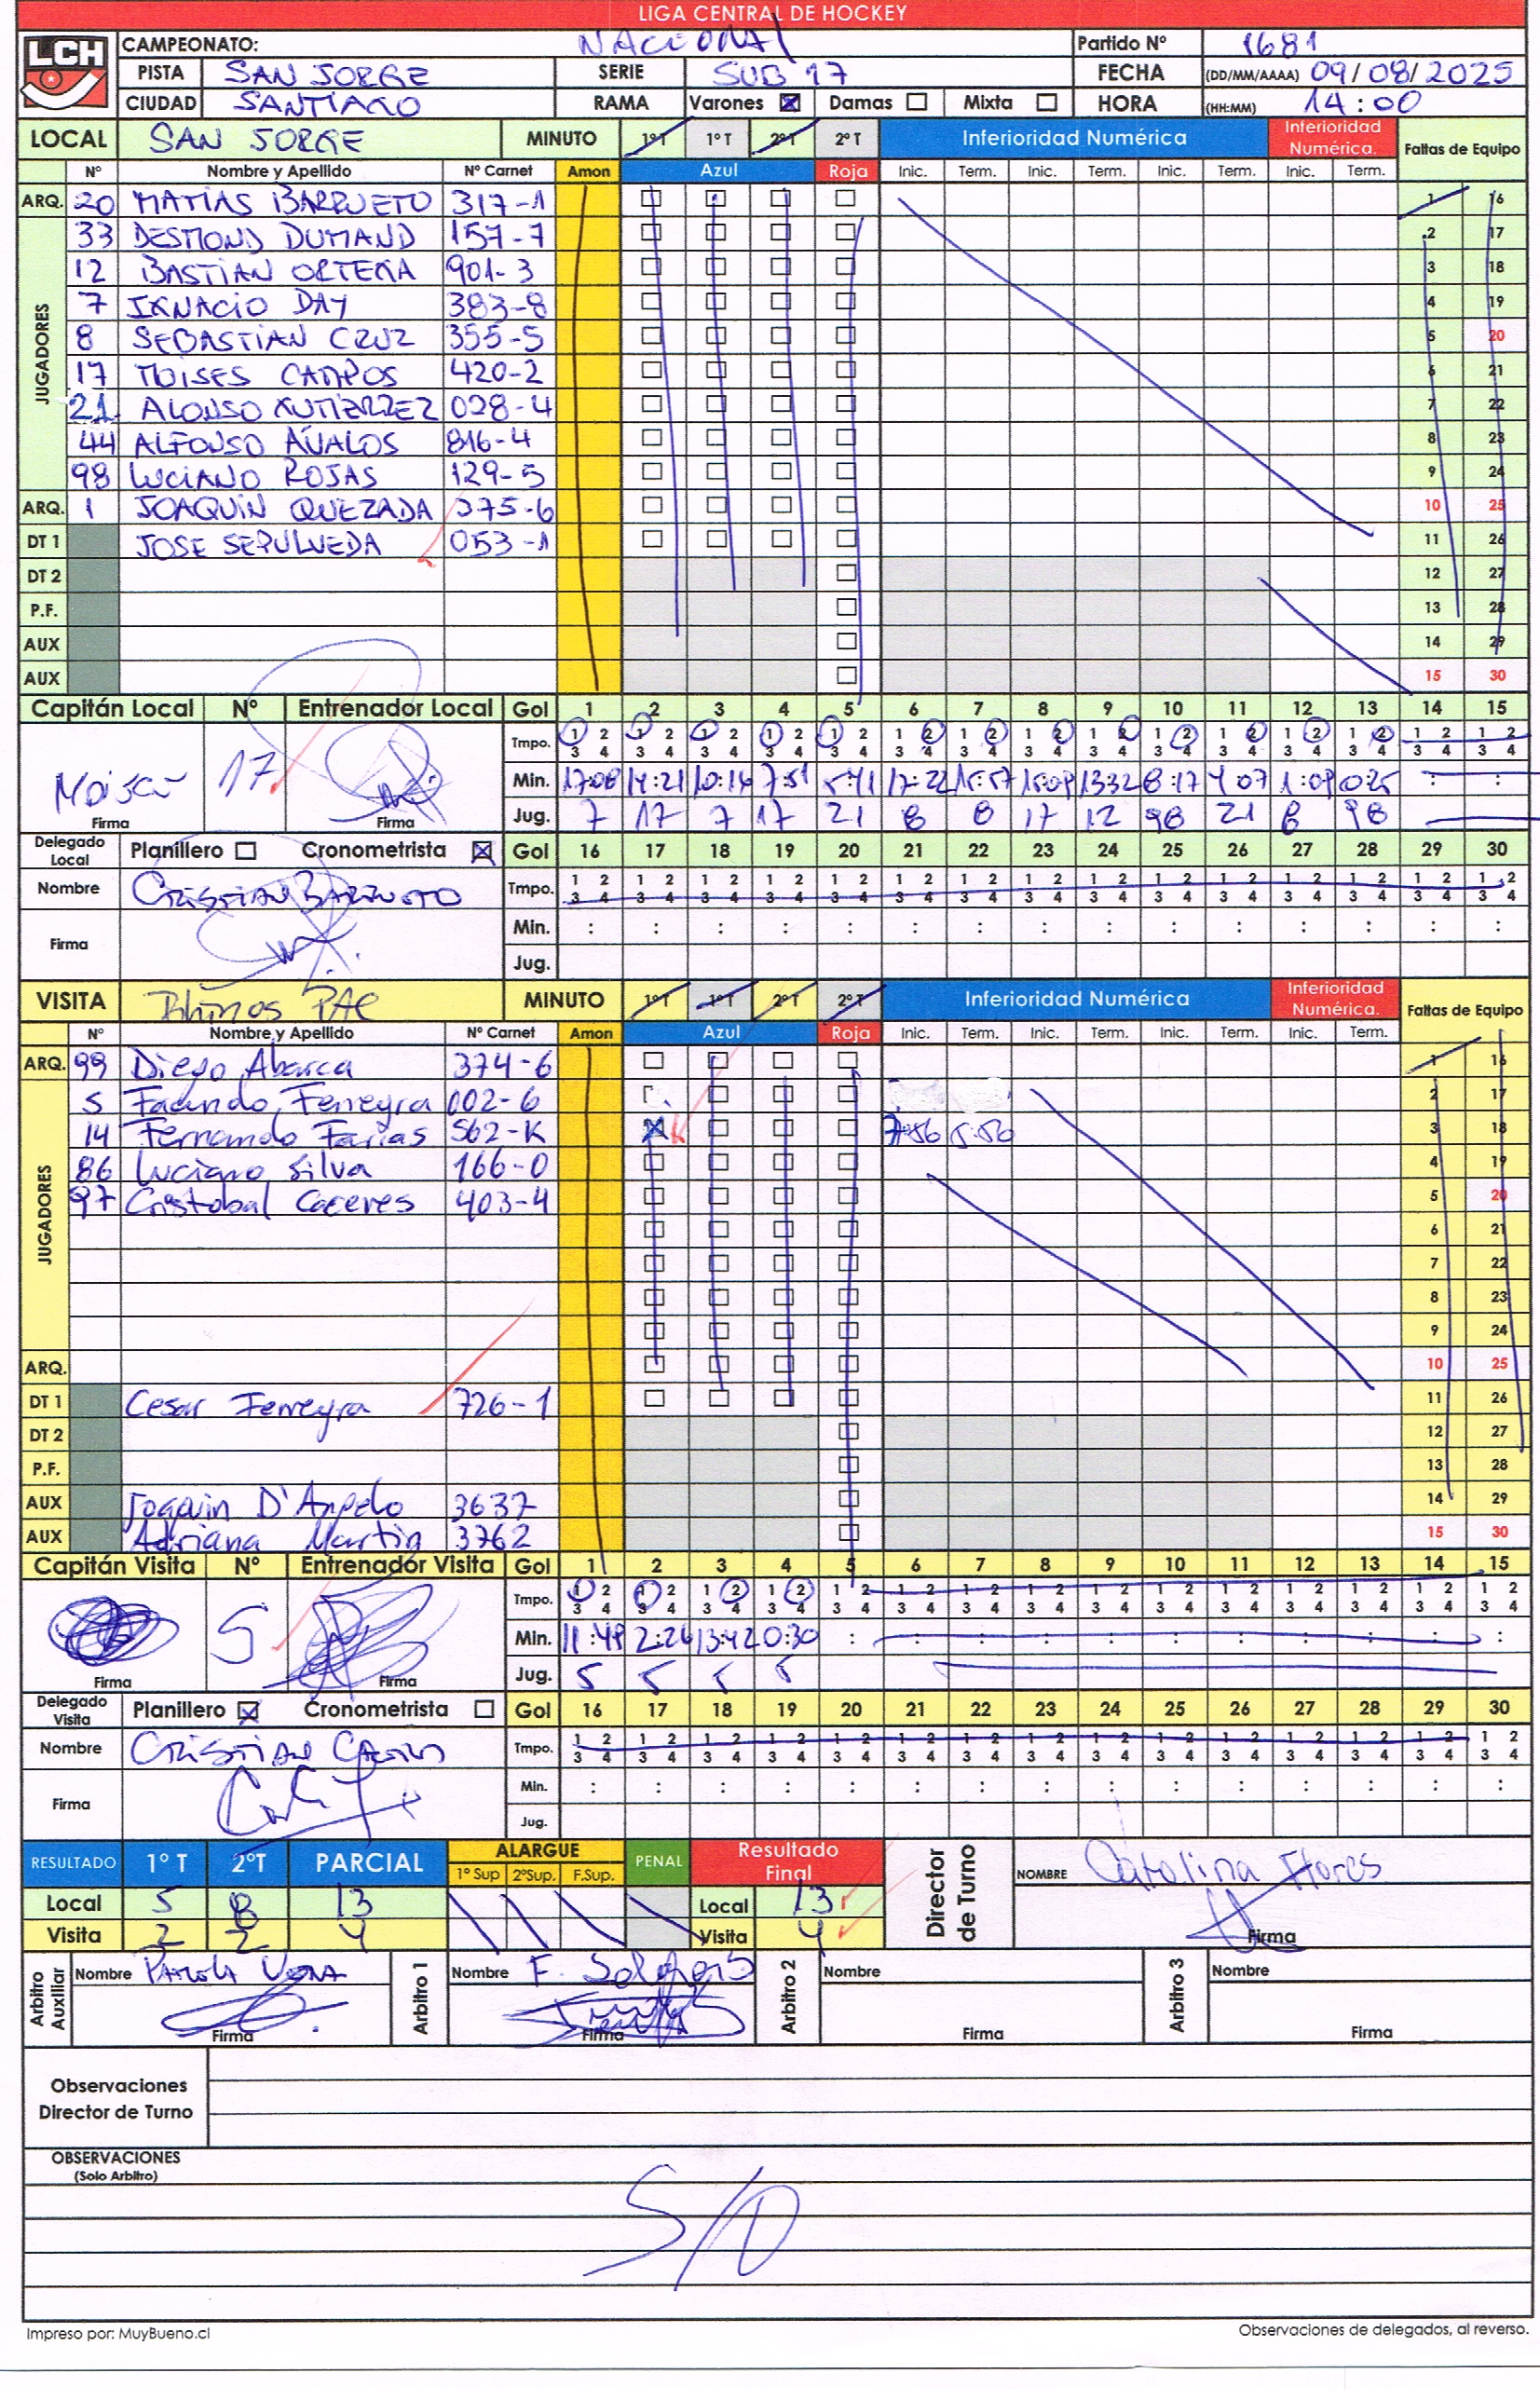 LIGA CENTRAL DE HOCKEY
LCH
CAMPEONATO: NACIONAL Partido Nº 1681
PISTA SAN JORGE SERIE SUB 17 FECHA (DD/MM/AAAA) 09/08/2025
CIUDAD SANTIAGO RAMA Varones Damas Mixta HORA (HH:MM) 14:00
LOCAL SAN JORGE MINUTO 1º T 1º T 2º T 2º T Inferioridad Numérica Inferioridad Numérica. Faltas de Equipo
Nº Nombre y Apellido Nº Carnet Amon Azul Roja Inic. Term. Inic. Term. Inic. Term. Inic. Term.
ARQ. 20 MATIAS BARRUETO 317-1 1 16
JUGADORES
33 DESMOND DUMAND 157-7 2 17
12 BASTIAN ORTEGA 901-3 3 18
7 IGNACIO DAY 383-8 4 19
8 SEBASTIAN CRUZ 355-5 5 20
17 MOISES CAMPOS 420-2 6 21
21 ALONSO GUTIERREZ 028-4 7 22
44 ALFONSO AVALOS 816-4 8 23
98 LUCIANO ROJAS 129-5 9 24
ARQ. 1 JOAQUIN QUEZADA 375-6 10 25
DT 1 JOSE SEPULVEDA 053-1 11 26
DT 2 12 27
P.F. 13 28
AUX 14 29
AUX 15 30
Capitán Local Nº Entrenador Local Gol 1 2 3 4 5 6 7 8 9 10 11 12 13 14 15
Tmpo. 1 2 1 2 1 2 1 2 1 2 1 2 1 2 1 2 1 2 1 2 1 2 1 2 1 2 1 2 1 2
3 4 3 4 3 4 3 4 3 4 3 4 3 4 3 4 3 4 3 4 3 4 3 4 3 4 3 4 3 4
Moises 17 Min. 17:08 14:21 10:14 7:51 5:41 17:22 15:57 15:09 13:32 8:17 4:07 1:09 0:25 : :
Firma Firma Jug. 7 17 7 17 21 8 8 17 12 98 21 8 98
Delegado Local Planillero Cronometrista Gol 16 17 18 19 20 21 22 23 24 25 26 27 28 29 30
Nombre CRISTIAN BARRUETO Tmpo. 1 2 1 2 1 2 1 2 1 2 1 2 1 2 1 2 1 2 1 2 1 2 1 2 1 2 1 2 1 2
3 4 3 4 3 4 3 4 3 4 3 4 3 4 3 4 3 4 3 4 3 4 3 4 3 4 3 4 3 4
Firma Min. : : : : : : : : : : : : : : :
Jug.
VISITA Rhinos PAC MINUTO 1º T 1º T 2º T 2º T Inferioridad Numérica Inferioridad Numérica. Faltas de Equipo
Nº Nombre y Apellido Nº Carnet Amon Azul Roja Inic. Term. Inic. Term. Inic. Term. Inic. Term.
ARQ. 99 Diego Abarca 374-6 1 16
JUGADORES
5 Facundo Ferreyra 002-6 2 17
14 Fernando Farias 562-K 7:56 5:56 3 18
86 Luciano Silva 166-0 4 19
97 Cristobal Caceres 403-4 5 20
6 21
7 22
8 23
9 24
ARQ. 10 25
DT 1 Cesar Ferreyra 726-1 11 26
DT 2 12 27
P.F. 13 28
AUX Joaquin D'Angelo 3637 14 29
AUX Adriana Martin 3762 15 30
Capitán Visita Nº Entrenador Visita Gol 1 2 3 4 5 6 7 8 9 10 11 12 13 14 15
Tmpo. 1 2 1 2 1 2 1 2 1 2 1 2 1 2 1 2 1 2 1 2 1 2 1 2 1 2 1 2 1 2
3 4 3 4 3 4 3 4 3 4 3 4 3 4 3 4 3 4 3 4 3 4 3 4 3 4 3 4 3 4
5 Min. 11:48 2:26 13:42 0:30 : : : : : : : : : : :
Firma Firma Jug. 5 5 5 5
Delegado Visita Planillero Cronometrista Gol 16 17 18 19 20 21 22 23 24 25 26 27 28 29 30
Nombre CRISTIAN CASTRO Tmpo. 1 2 1 2 1 2 1 2 1 2 1 2 1 2 1 2 1 2 1 2 1 2 1 2 1 2 1 2 1 2
3 4 3 4 3 4 3 4 3 4 3 4 3 4 3 4 3 4 3 4 3 4 3 4 3 4 3 4 3 4
Firma Min. : : : : : : : : : : : : : : :
Jug.
RESULTADO 1º T 2ºT PARCIAL ALARGUE 1º Sup 2ºSup. F.Sup. PENAL Resultado Final Director de Turno NOMBRE Catalina Flores
Local 5 8 13 Local 13
Visita 2 2 4 Visita 4 Firma
Arbitro Auxiliar Nombre PAOLA VERA Arbitro 1 Nombre F. Arbitro 2 Nombre Arbitro 3 Nombre
Firma Firma Firma Firma
Observaciones
Director de Turno
OBSERVACIONES
(Solo Arbitro)
S/O
Impreso por: MuyBueno.cl Observaciones de delegados, al reverso.